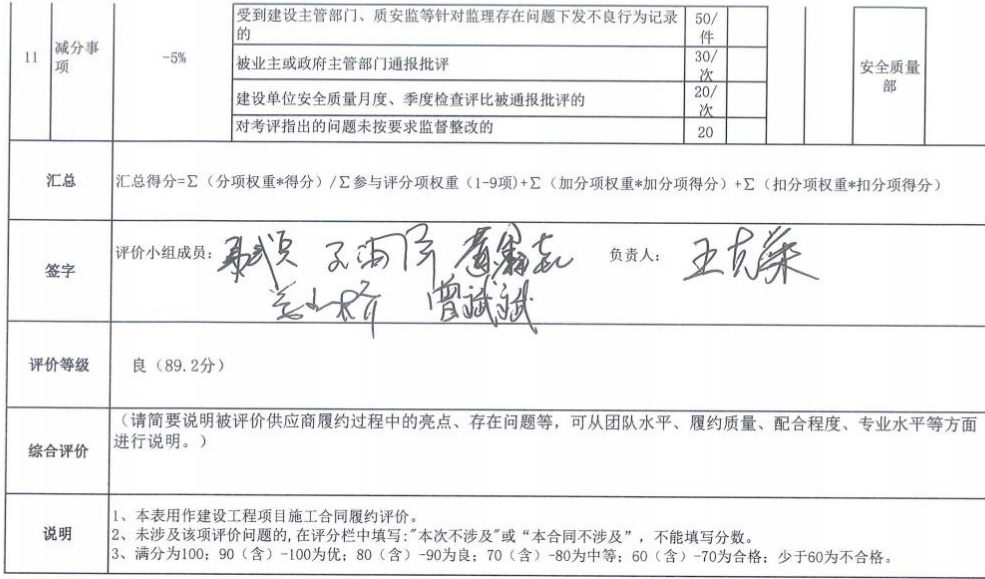 受到建设主管部门、质安监等针对监理存在问题下发不良行为记录的 50/件
11 减分事项 -5% 被业主或政府主管部门通报批评 30/次 安全质量部
建设单位安全质量月度、季度检查评比被通报批评的 20/次
对考评指出的问题未按要求监督整改的 20
汇总 汇总得分=Σ（分项权重*得分）/Σ参与评分项权重（1-9项)+Σ（加分项权重*加分项得分）+Σ（扣分项权重*扣分项得分）
签字 评价小组成员： 负责人：
曾斌斌
评价等级 良（89.2分）
综合评价 （请简要说明被评价供应商履约过程中的亮点、存在问题等，可从团队水平、履约质量、配合程度、专业水平等方面
进行说明。）
说明
1、本表用作建设工程项目施工合同履约评价。
2、未涉及该项评价问题的,在评分栏中填写:"本次不涉及"或“本合同不涉及”，不能填写分数。
3、满分为100；90（含）-100为优；80（含）-90为良；70（含）-80为中等；60（含）-70为合格；少于60为不合格。